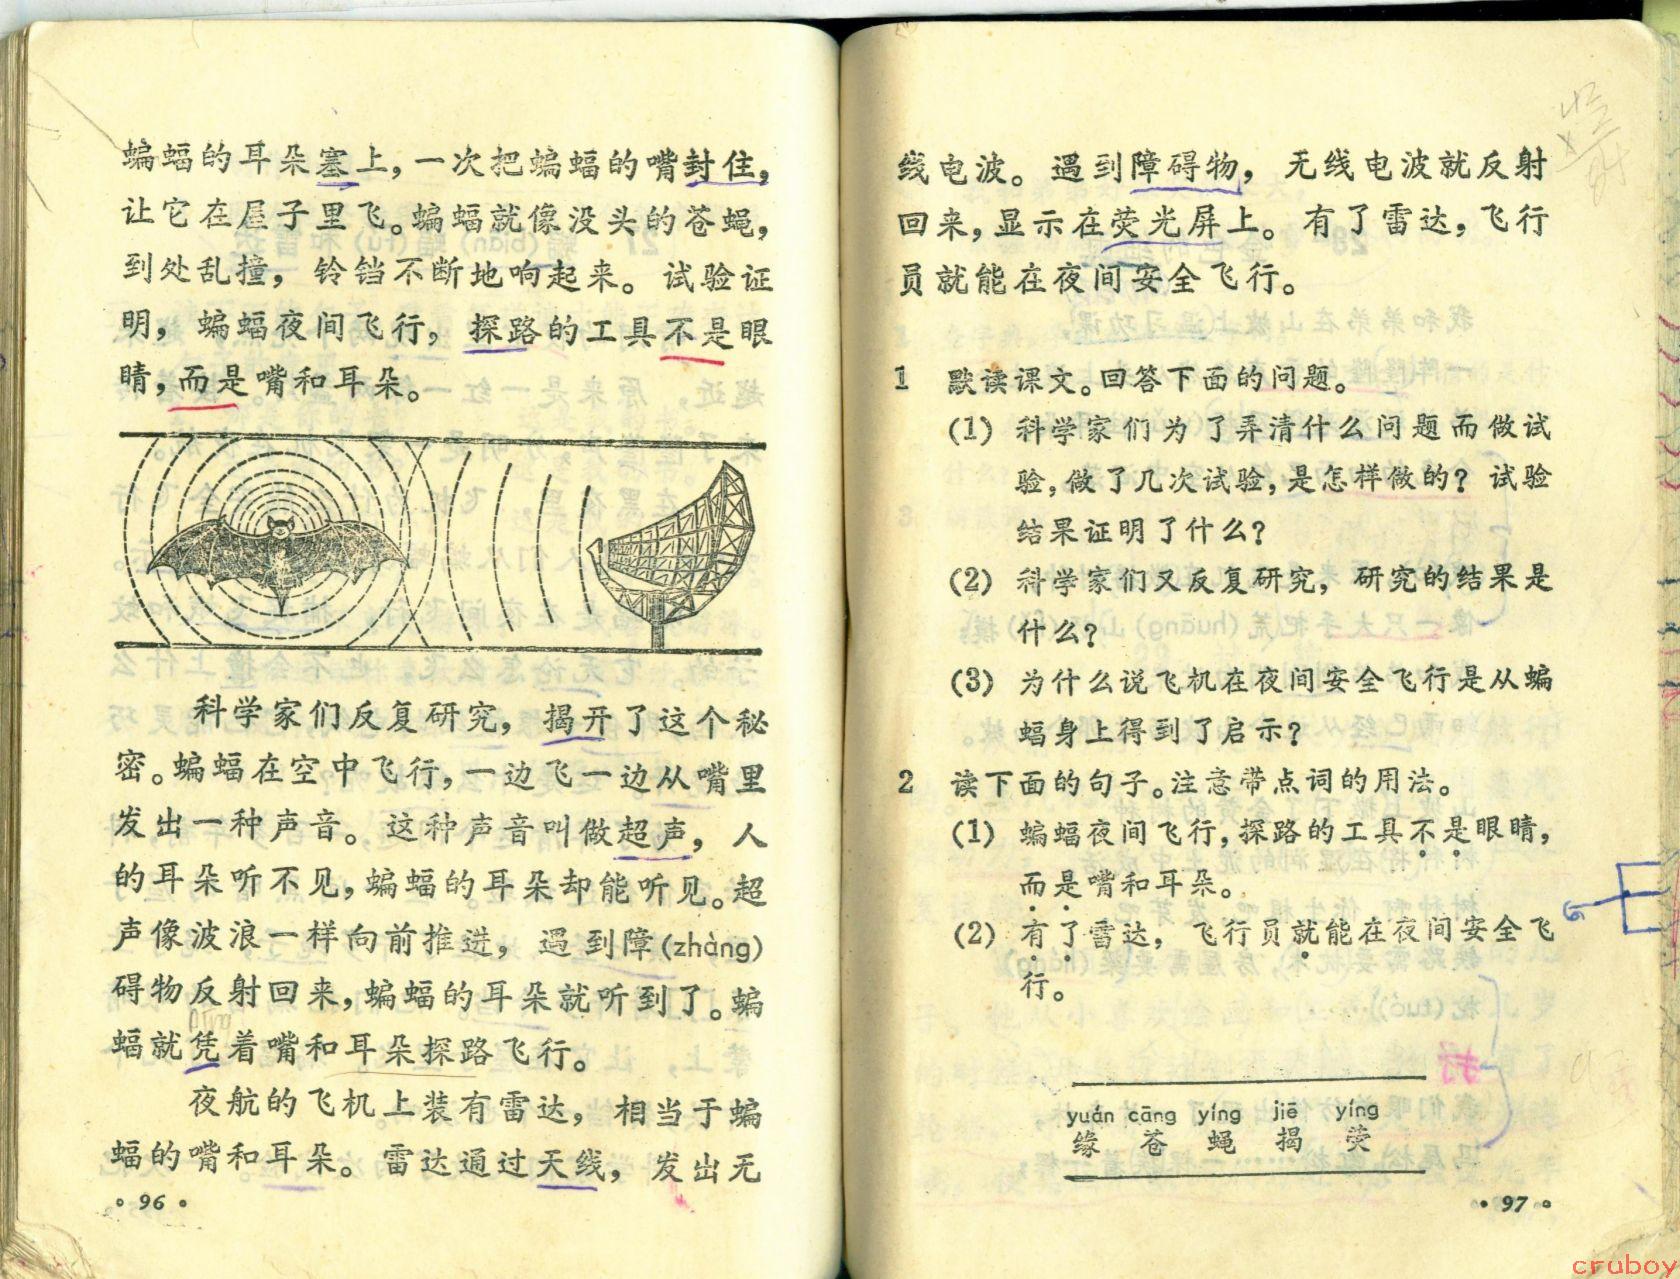 蝙蝠的耳朵塞上，一次把蝙蝠的嘴封住，
让它在屋子里飞。蝙蝠就像没头的苍蝇，
到处乱撞，铃铛不断地响起来。试验证
明，蝙蝠夜间飞行，探路的工具不是眼
睛，而是嘴和耳朵。
科学家们反复研究，揭开了这个秘
密。蝙蝠在空中飞行，一边飞一边从嘴里
发出一种声音。这种声音叫做超声，人
的耳朵听不见，蝙蝠的耳朵却能听见。超
声像波浪一样向前推进，遇到障(zhàng)
碍物反射回来，蝙蝠的耳朵就听到了。蝙
蝠就凭着嘴和耳朵探路飞行。
夜航的飞机上装有雷达，相当于蝙
蝠的嘴和耳朵。雷达通过天线，发出无
·96·
线电波。遇到障碍物，无线电波就反射
回来，显示在荧光屏上。有了雷达，飞行
员就能在夜间安全飞行。
1 默读课文。回答下面的问题。
(1) 科学家们为了弄清什么问题而做试
验，做了几次试验，是怎样做的？试验
结果证明了什么？
(2) 科学家们又反复研究，研究的结果是
什么？
(3) 为什么说飞机在夜间安全飞行是从蝙
蝠身上得到了启示？
2 读下面的句子。注意带点词的用法。
(1) 蝙蝠夜间飞行，探路的工具不是眼睛，
而是嘴和耳朵。
(2) 有了雷达，飞行员就能在夜间安全飞
行。
yuán cāng yíng jiē yíng
缘 苍 蝇 揭 荧
·97·
cruboy